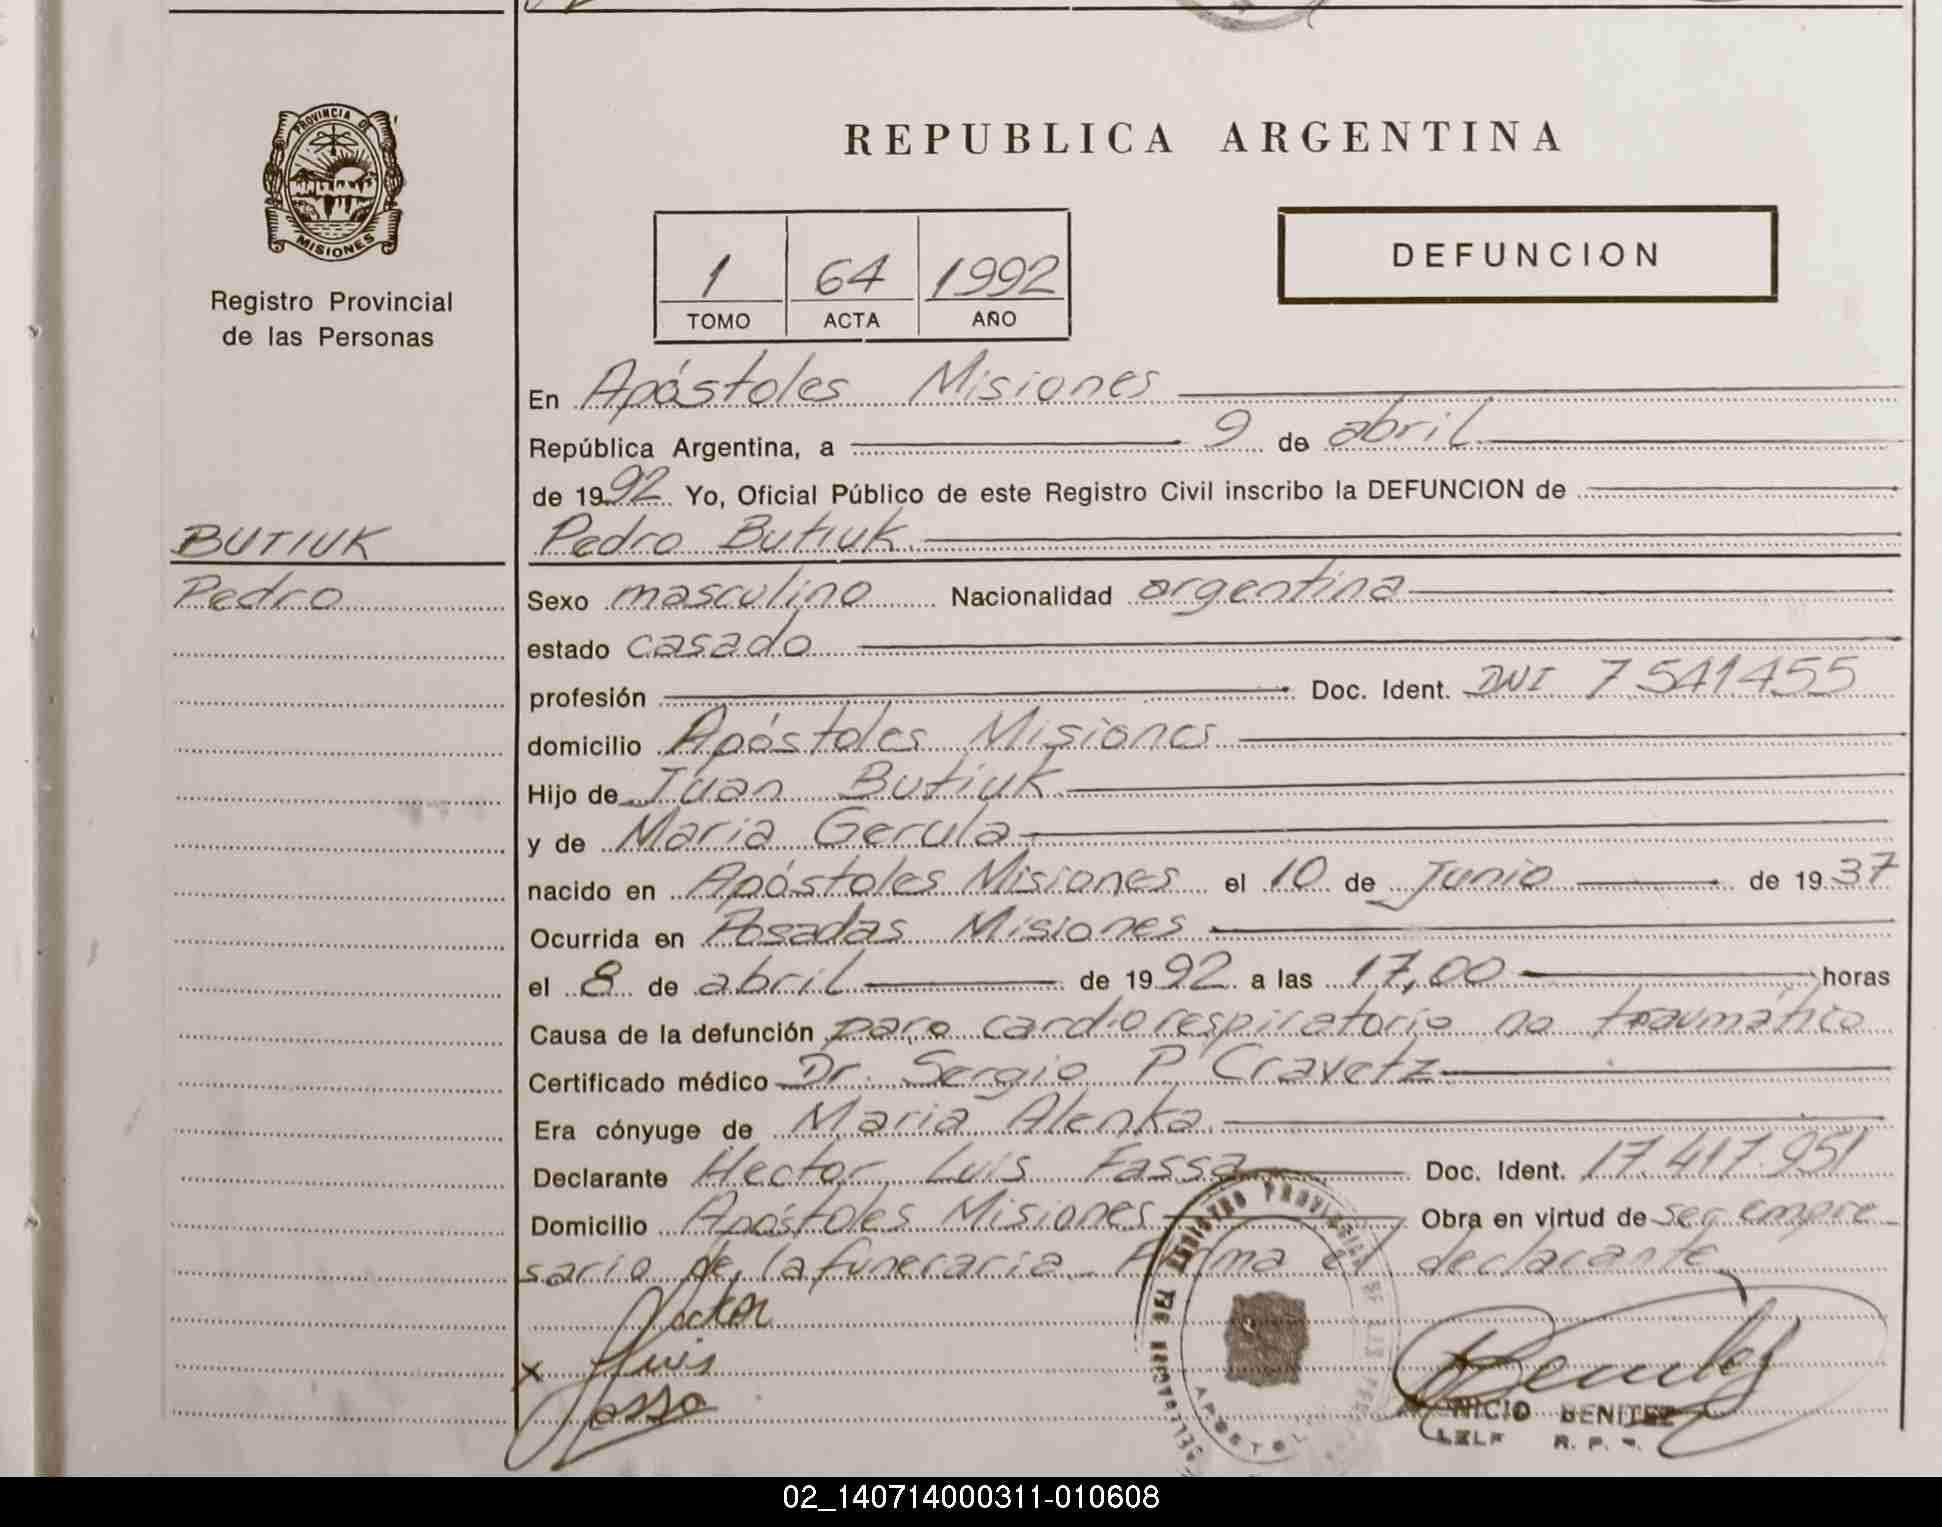 PROVINCIA DE
MISIONES
Registro Provincial
de las Personas
REPUBLICA ARGENTINA
1 64 1992
TOMO ACTA AÑO
DEFUNCION
En Apóstoles Misiones
República Argentina, a 9 de abril
de 1992 Yo, Oficial Público de este Registro Civil inscribo la DEFUNCION de
BUTIUK
Pedro
Pedro Butiuk.
Sexo masculino Nacionalidad argentina
estado casado
profesión Doc. Ident. DNI 7541455
domicilio Apóstoles Misiones
Hijo de Juan Butiuk
y de Maria Gerula
nacido en Apóstoles Misiones el 10 de Junio de 1937
Ocurrida en Posadas Misiones
el 8 de abril de 1992 a las 17,00 horas
Causa de la defunción paro cardiorespiratorio no traumático
Certificado médico Dr. Sergio P Cravetz
Era cónyuge de Maria Alenka.
Declarante Hector Luis Fassa Doc. Ident. 17.417.951
Domicilio Apóstoles Misiones Obra en virtud de ser empre
sario de la funeraria. Firma el declarante
Hector
x Luis
Fassa
Benitez
BENITEZ
02_140714000311-010608